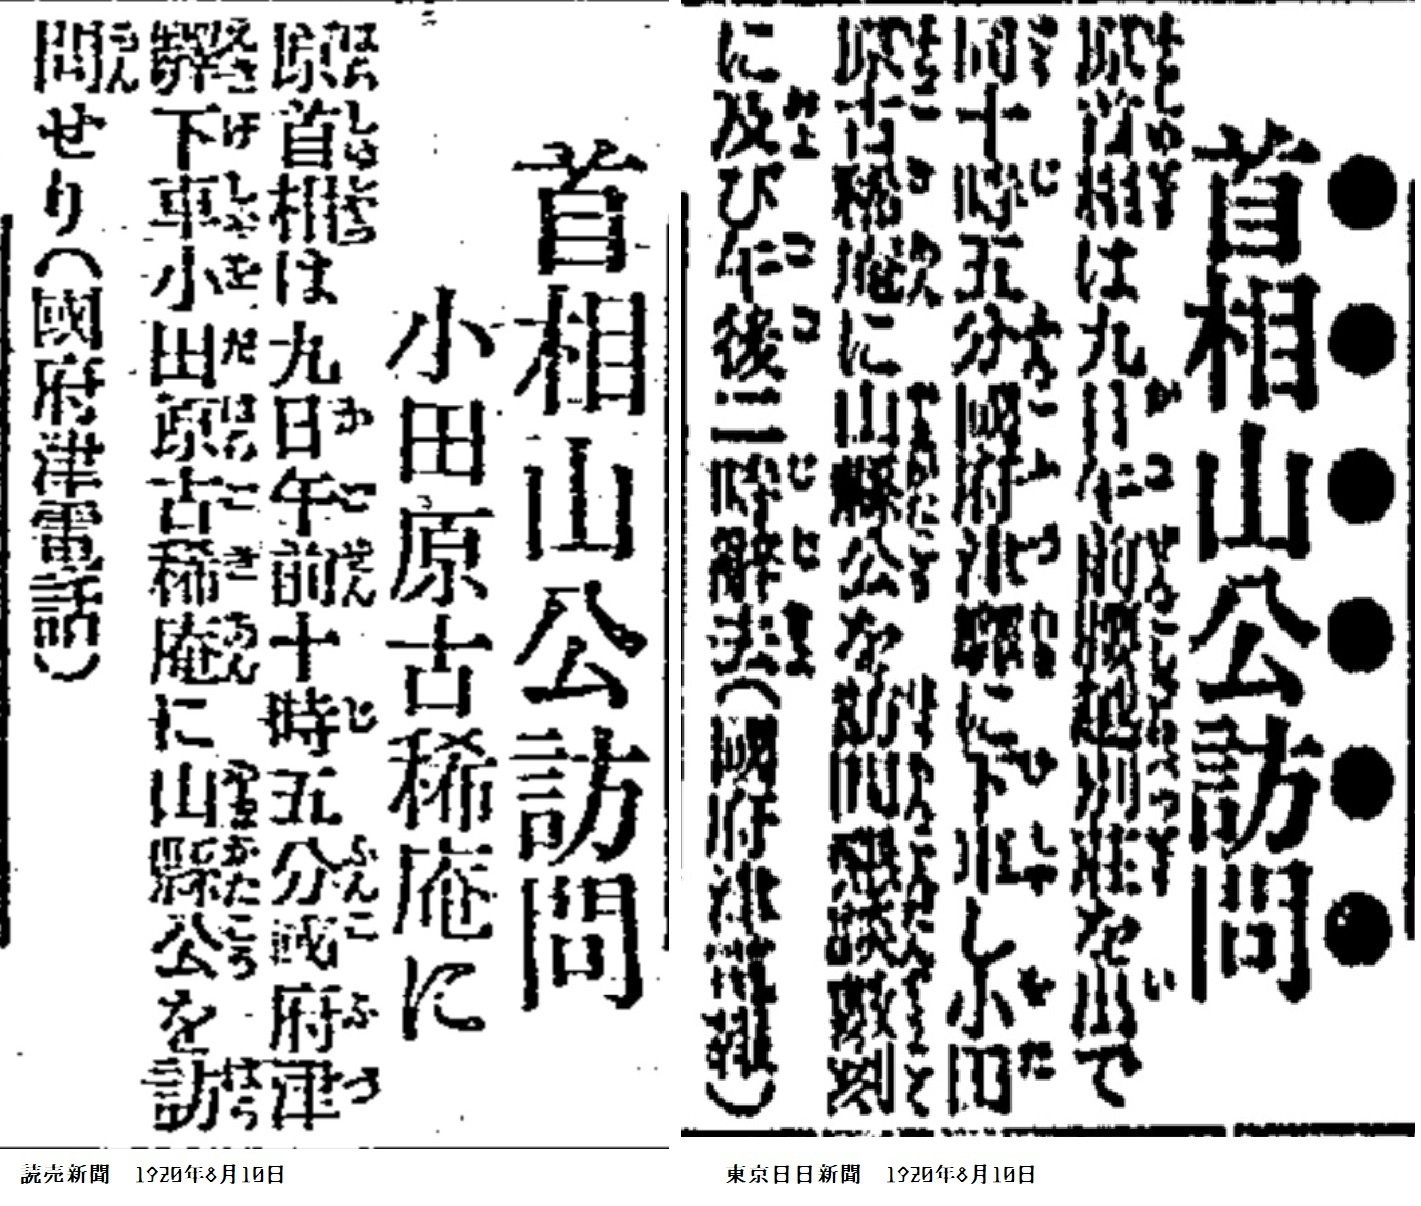 首相山公訪問
小田原古稀庵に
原首相は九日午前十時五分國府津
驛下車小田原古稀庵に山縣公を訪
問せり(國府津電話)
読売新聞 1920年8月10日
●●●●●●
首相山公訪問
原首相は九日午前腰越別莊を出で
同十時五分國府津驛に下車し小田
原古稀庵に山縣公を訪問懇談數刻
に及び午後二時辭去(國府津電報)
東京日日新聞 1920年8月10日